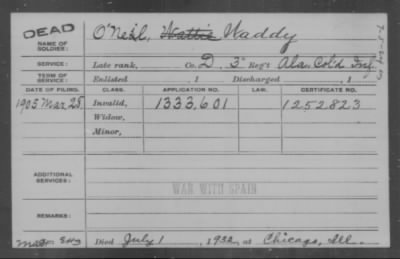 DEAD
NAME OF SOLDIER: O'Neil, Wattie Waddy
SERVICE: Late rank, Co. D, 3" Reg't Ala. Col'd Inf.
TERM OF SERVICE: Enlisted , 1 Discharged , 1
DATE OF FILING. CLASS. APPLICATION NO. LAW. CERTIFICATE NO.
1905 Mar. 25 Invalid, 1333,601 1252823
Widow,
Minor,
ADDITIONAL SERVICES:
WAR WITH SPAIN
REMARKS:
Died July 1, 1932, at Chicago, Ill.